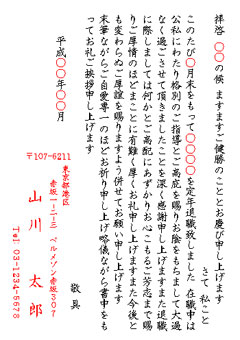 拝啓 〇〇の候 ますますご健勝のこととお慶び申し上げます
さて 私こと
このたび〇月末をもって〇〇〇〇を定年退職致しました 在職中は
公私にわたり格別のご指導とご高庇を賜りお陰をもちまして大過
なく過ごさせて頂きましたことを深く感謝申し上げますまた退職
に際しましては何かとご高配にあずかりお心こもるご芳志まで賜
りご厚情のほどまことに有難く厚くお礼申し上げますまた今後と
も変わらぬご厚誼を賜りますよう併せてお願い申し上げます
末筆ながらご自愛専一のほどお祈り申し上げ略儀ながら書中をも
ってお礼ご挨拶申し上げます
敬具
平成〇〇年〇〇月
〒107-6211
東京都港区
赤坂1-1-1-1 ベルメゾン赤坂307
山川 太郎
Tel 03-1234-5678